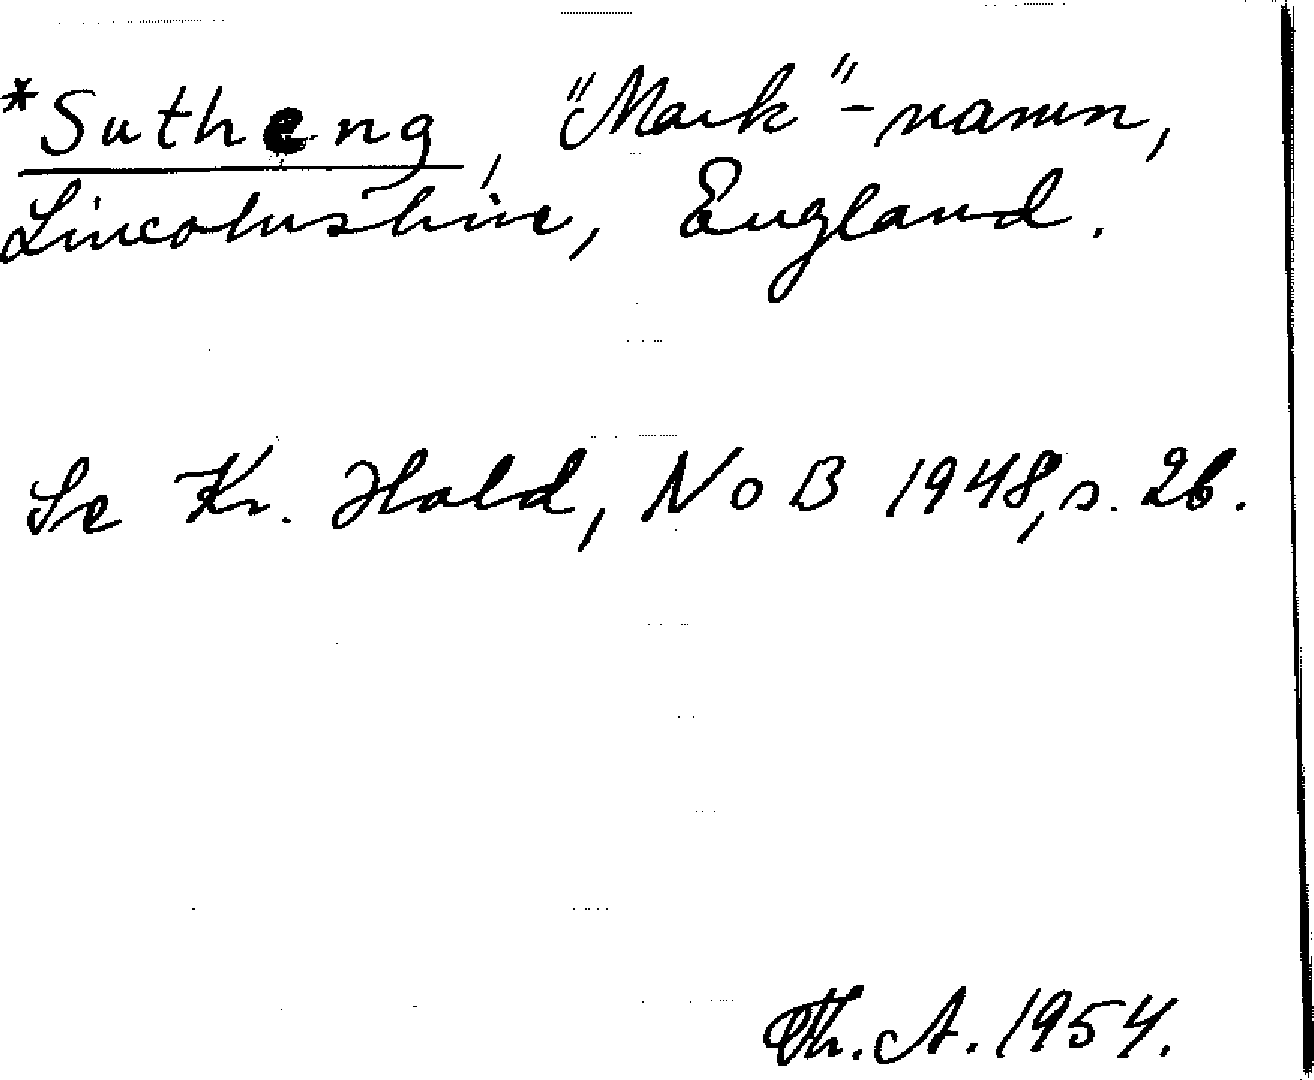 *Sutheng, "Mark"-namn,
Lincolnshire, England.
Se Kr. Hald, NoB 1948, s. 26.
Th. A. 1954.